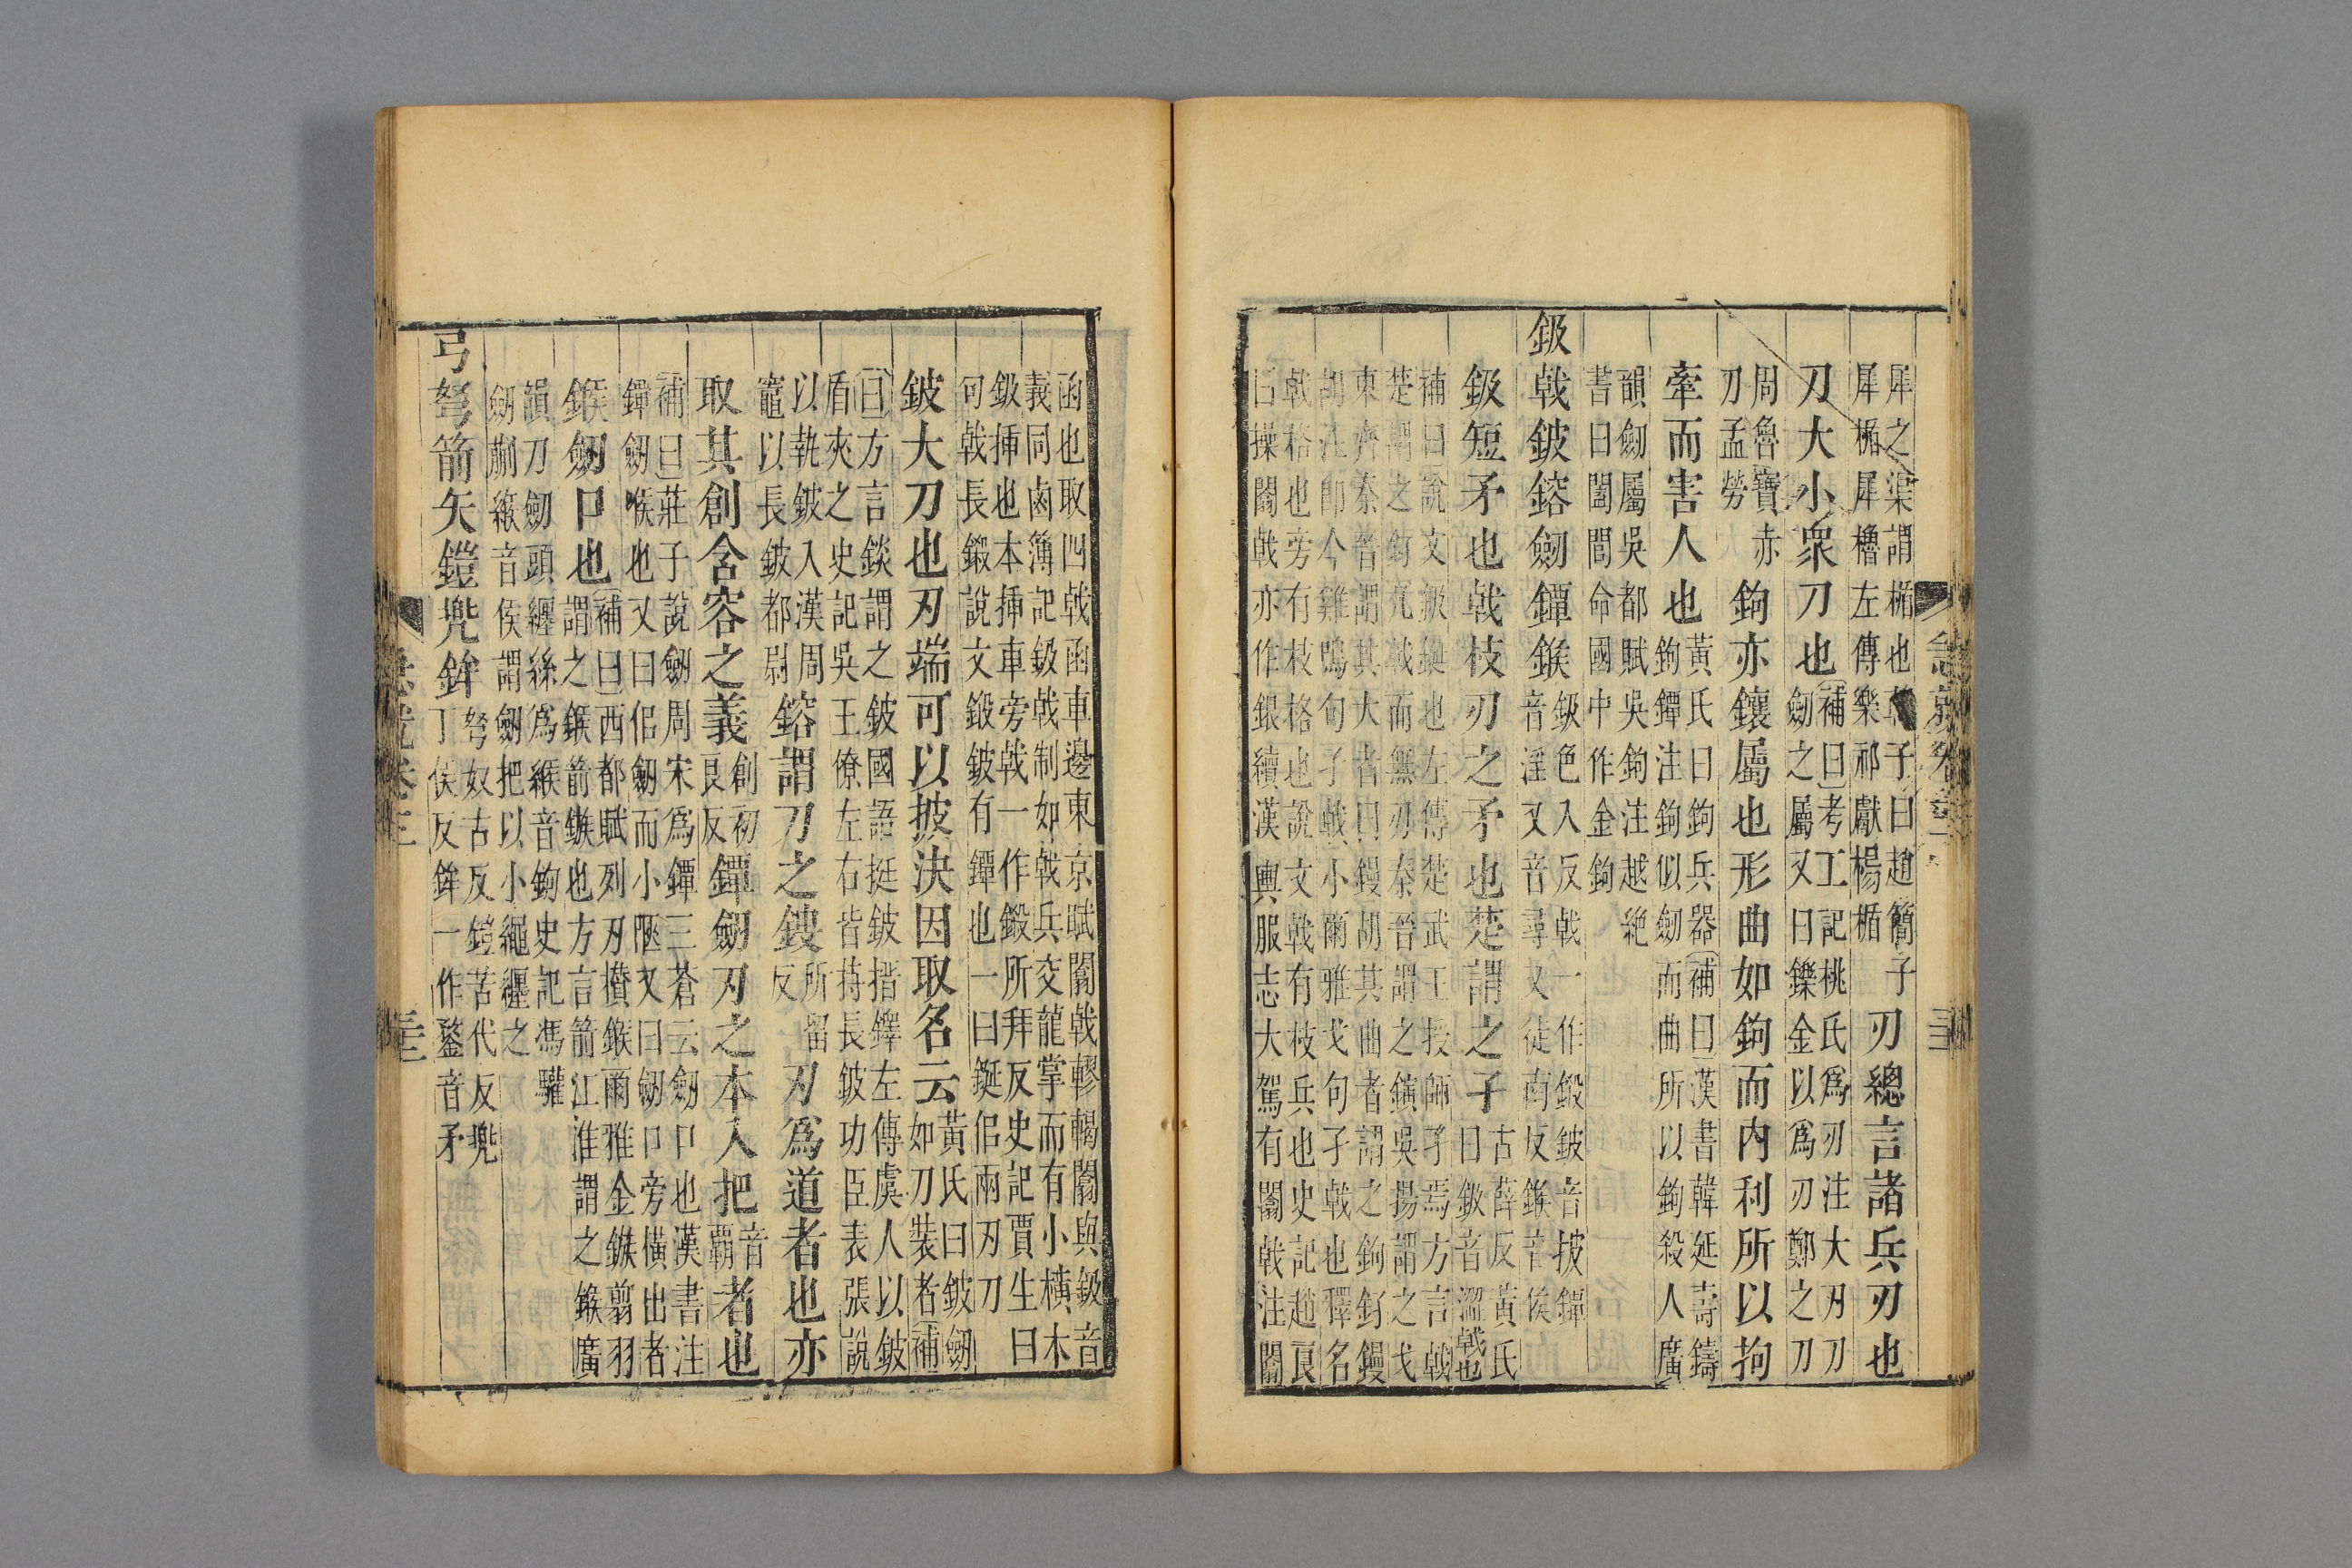 犀之渠謂楯也韓子曰趙簡子
犀楯犀櫓左傳樂祁獻楊楯
刃總言諸兵刃也
刀大小衆刀也
補曰考工記桃氏爲刃注大刃刀
劒之屬又曰鑠金以爲刃鄭之刀
周魯寶赤
刀孟勞
鉤亦鑲屬也形曲如鉤而内利所以拘
牽而害人也
黃氏曰鉤兵器補曰漢書韓延壽鑄
鉤鐔注鉤似劒而曲所以鉤殺人廣
韻劒屬吳都賦吳鉤注越絶
書曰闔閭命國中作金鉤
鈒戟鈹鎔劒鐔鍭
鈒色入反戟一作鍛鈹音披鐔
音淫又音尋又徒南反鍭音侯
鈒短矛也戟枝刃之矛也楚謂之孑
古薛反黃氏
曰鈒音澀戟也
補曰說文鈒鋋也左傳楚武王授師孑焉方言戟
楚謂之釨凡戟而無刃秦晉謂之鏔吳揚謂之戈
東齊秦晉謂其大者曰鏝胡其曲者謂之鉤釨鏝
胡注即今雞鳴句孑戟小爾雅戈句孑戟也釋名
戟格也旁有枝格也說文戟有枝兵也史記趙良
曰操闟戟亦作鈒續漢輿服志大駕有闟戟注闟
函也取四戟函車邊東京賦闟戟轇輵闟與鈒音
義同鹵簿記鈒戟制如戟兵交龍掌而有小橫木
鈒揷也本揷車旁戟一作鍛所拜反史記賈生曰
句戟長鎩說文鎩鈹有鐔也一曰鋋侣兩刃刀
鈹大刀也刃端可以披決因取名云
黃氏曰鈹劒
如刀裝者補
曰方言錟謂之鈹國語挺鈹搢鐸左傳虞人以鈹
盾夾之史記吳王僚左右皆持長鈹功臣表張說
以執鈹入漢周
竈以長鈹都尉
鎔謂刀之鎪
所留
反
刃爲道者也亦
取其創含容之義
創初
良反
鐔劒刃之本入把
音
霸
者也
補曰莊子說劒周宋爲鐔三蒼云劒口也漢書注
鐔劒喉也又曰侣劒而小陿又曰劒口旁橫出者
鍭劒口也
補曰西都賦列刃攢鍭爾雅金鏃翦羽
謂之鍭箭鏃也方言箭江淮謂之鍭廣
韻刀劒頭纒絲爲緱音鉤史記馮驩
劒蒯緱音侯謂劒把以小繩纒之
弓弩箭矢鎧兠鉾
弩奴古反鎧苦代反兠
丁侯反鉾一作鍪音矛